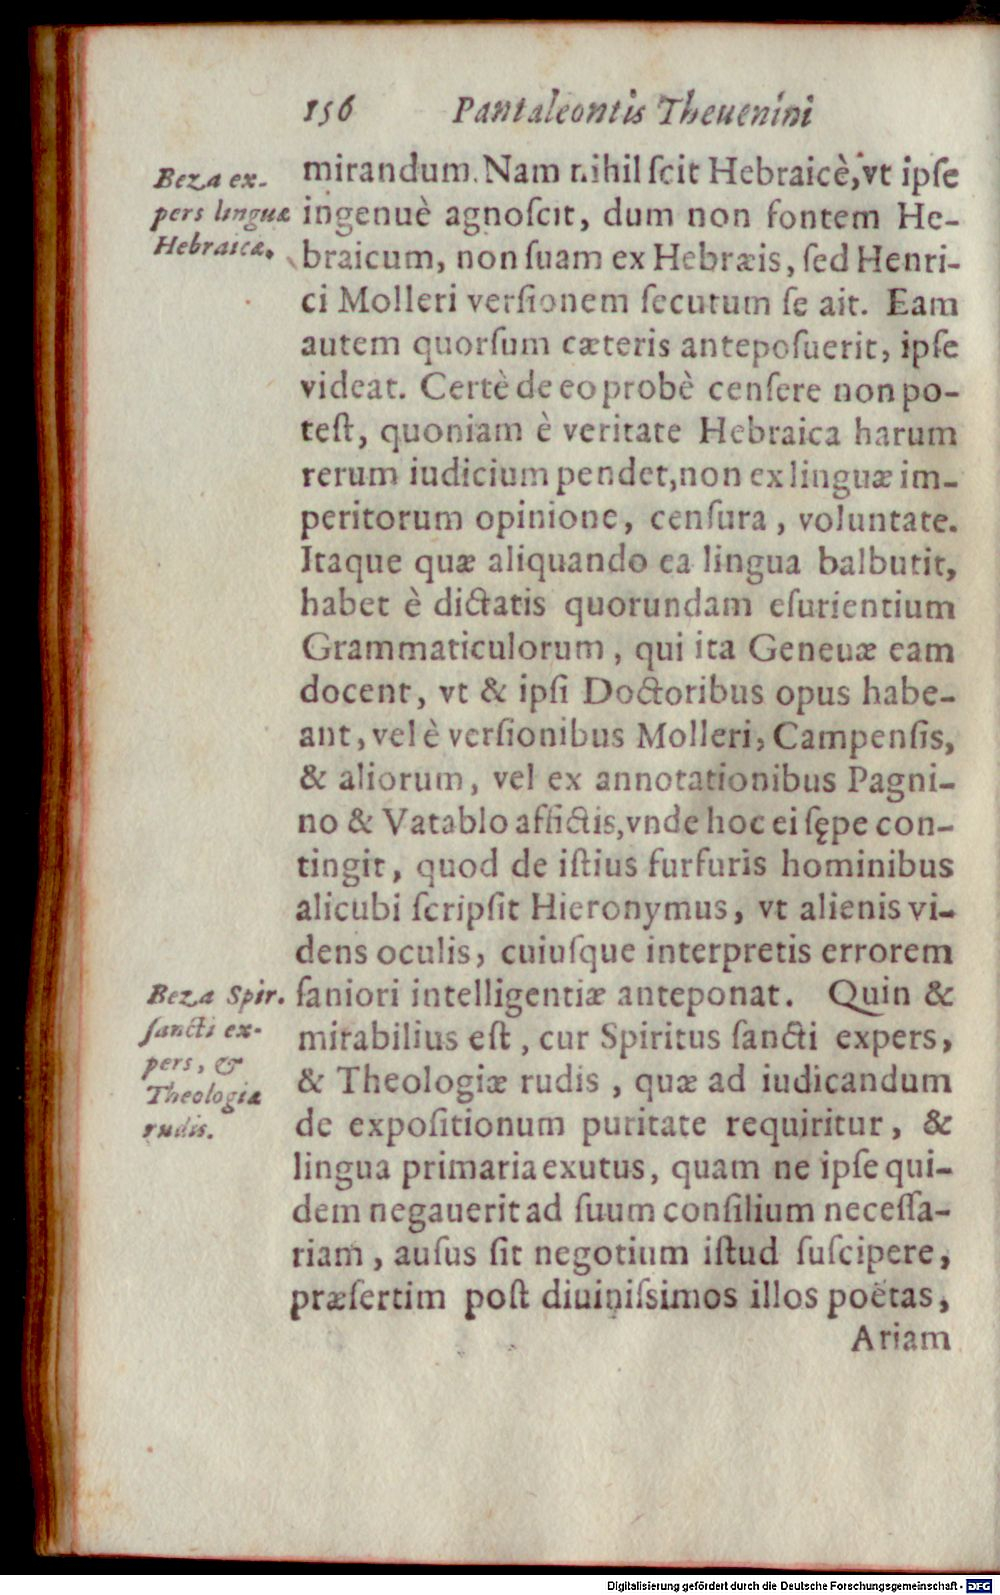 156 Pantaleontis Theuenini
Beza ex-
pers linguæ
Hebraicæ.
mirandum. Nam nihil ſcit Hebraicè, vt ipſe
ingenuè agnoſcit, dum non fontem He-
braicum, non ſuam ex Hebræis, ſed Henri-
ci Molleri verſionem ſecutum ſe ait. Eam
autem quorſum cæteris antepoſuerit, ipſe
videat. Certè de eo probè cenſere non po-
teſt, quoniam è veritate Hebraica harum
rerum iudicium pendet, non ex linguæ im-
peritorum opinione, cenſura, voluntate.
Itaque quæ aliquando ea lingua balbutit,
habet è dictatis quorundam eſurientium
Grammaticulorum, qui ita Geneuæ eam
docent, vt & ipſi Doctoribus opus habe-
ant, vel è verſionibus Molleri, Campenſis,
& aliorum, vel ex annotationibus Pagni-
no & Vatablo affictis, vnde hoc ei ſępe con-
tingit, quod de iſtius furfuris hominibus
alicubi ſcripſit Hieronymus, vt alienis vi-
dens oculis, cuiuſque interpretis errorem
Beza Spir.
ſancti ex-
pers, &
Theologiæ
rudis.
ſaniori intelligentiæ anteponat. Quin &
mirabilius eſt, cur Spiritus ſancti expers,
& Theologiæ rudis, quæ ad iudicandum
de expoſitionum puritate requiritur, &
lingua primaria exutus, quam ne ipſe qui-
dem negauerit ad ſuum conſilium neceſſa-
riam, auſus ſit negotium iſtud ſuſcipere,
præſertim poſt diuiniſsimos illos poëtas,
Ariam
Digitalisierung gefördert durch die Deutsche Forschungsgemeinschaft - DFG